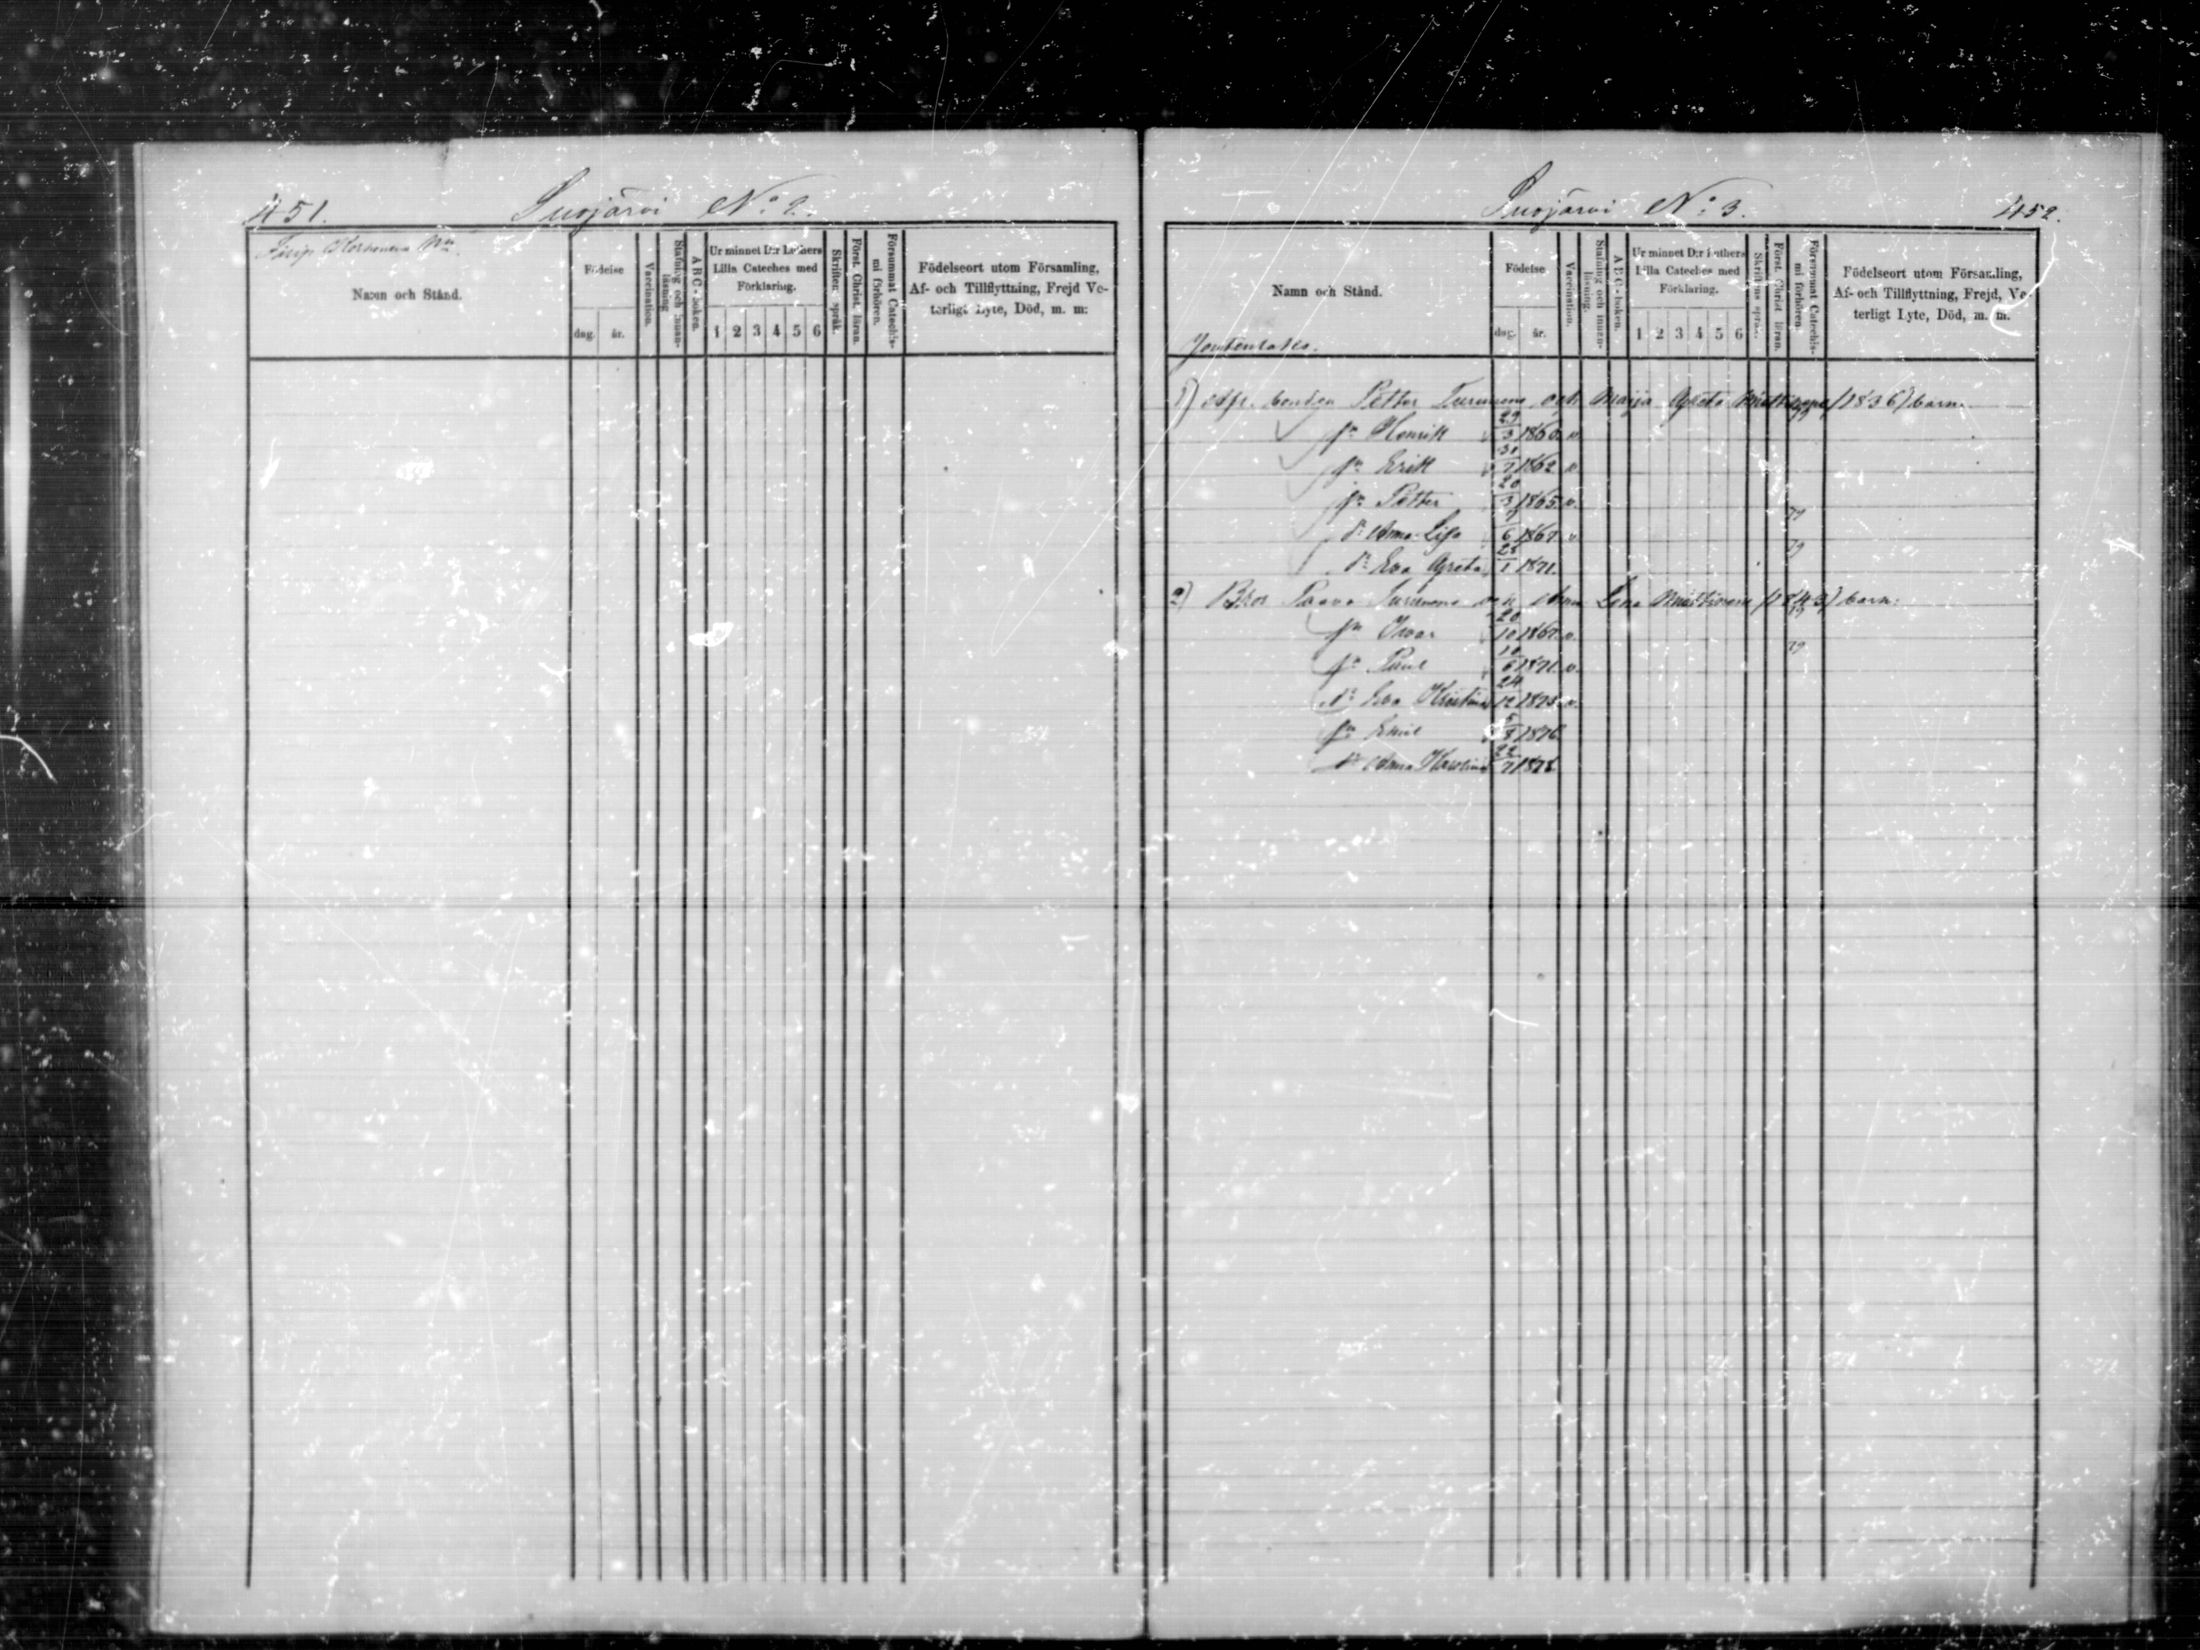 451.
Suojärvi N:o 2.
Namn och Stånd.
Födelse
dag. år.
Vaccination.
Stafning och innan-läsning
A B C-boken.
Ur minnet D:r Luthers Lilla Cateches med Förklaring.
1 2 3 4 5 6
Skriftens språk.
Först. Christ. läran.
Försummat Catechis-mi förhören.
Födelseort utom Församling,
Af- och Tillflyttning, Frejd Ve-
terligt Lyte, Död, m. m:
Suojärvi N:o 3.
452.
Namn och Stånd.
Födelse
dag. år.
Vaccination.
Stafning och innan-läsning.
A B C-boken.
Ur minnet D:r Luthers Lilla Cateches med Förklaring.
1 2 3 4 5 6
Skriftens språk.
Först. Christ. läran.
Försummat Catechis-mi förhören
Födelseort utom Församling,
Af- och Tillflyttning, Frejd, Ve-
terligt Lyte, Död, m. m.
1) Afl. bonden Petter Turunens och Maija Greta (1836) barn.
sn Henrik 29/3 1860. v
sn Erik 31/7 1862 v
sn Petter 20/3 1865. v. 79
dr Anna Lisa 7/6 1867. v 79
dr Eva Greta 28/1 1871.
2) Bror Paavo Turunens och Anna Lena (1843) barn:
sn Ivar 20/10 1867. v. 79
sn Paul 10/6 1871. v.
dr Eva Kristina 24/12 1873. v.
sn Emil 5/3 1876
dr Anna Karolina 22/7 1878